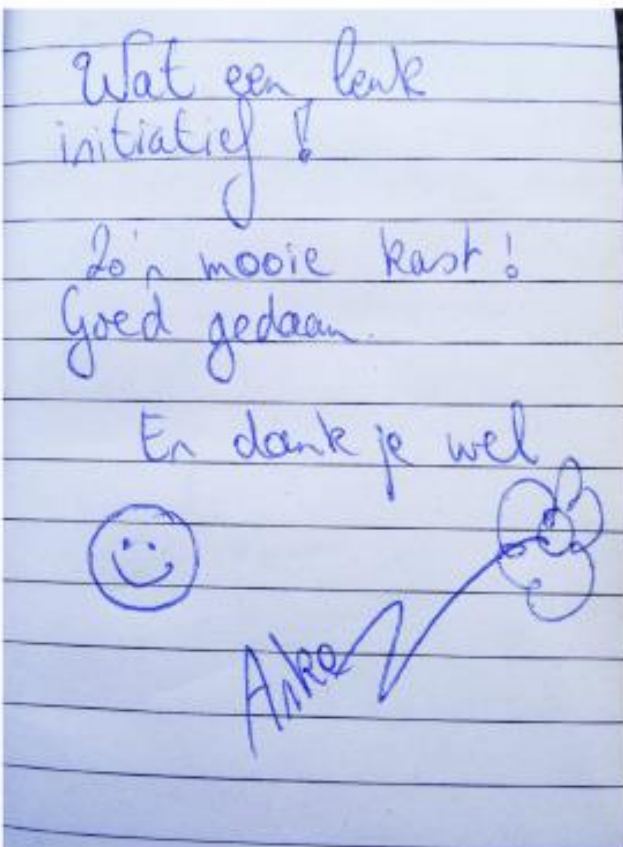 Wat een leuk
initiatief!
Zo'n mooie kast!
Goed gedaan.
En dank je wel
Anke